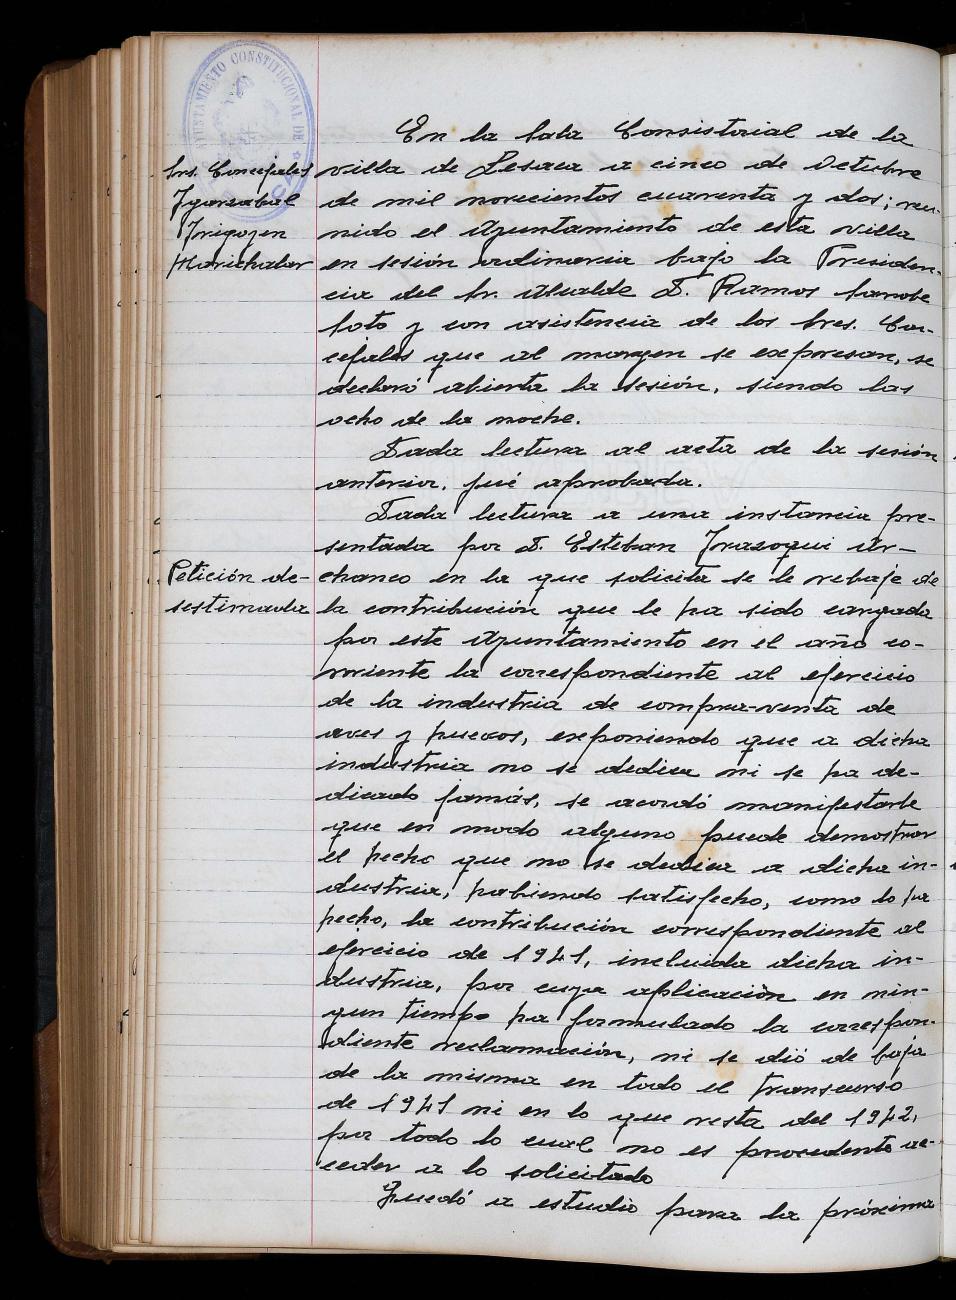 AYUNTAMIENTO CONSTITUCIONAL DE
Srs. Concejales
Ygarzabal
Irigoyen
Marichalar
En la Sala Consistorial de la
villa de Lesaca a cinco de Octubre
de mil novecientos cuarenta y dos; reu-
nido el Ayuntamiento de esta villa
en sesión ordinaria bajo la Presiden-
cia del Sr. Alcalde D. Ramos
y con asistencia de los Sres. Con-
cejales que al margen se expresan, se
declaró abierta la sesión, siendo las
ocho de la noche.
Dada lectura al acta de la sesión
anterior, fué aprobada.
Petición de-
sestimada
Dada lectura a una instancia pre-
sentada por D. Esteban Irazoqui Ar-
chaneo en la que solicita se le rebaje de
la contribución que le ha sido cargada
por este Ayuntamiento en el año co-
rriente la correspondiente al ejercicio
de la industria de compra-venta de
aves y huevos, exponiendo que a dicha
industria no se dedica ni se ha de-
dicado jamás, se acordó manifestarle
que en modo alguno puede demostrar
el hecho que no se dedica a dicha in-
dustria, habiendo satisfecho, como lo ha
hecho, la contribución correspondiente al
ejercicio de 1941, incluida dicha in-
dustria, por cuya aplicación en nin-
gun tiempo ha formulado la correspon-
diente reclamación, ni se dió de baja
de la misma en todo el transcurso
de 1941 ni en lo que resta del 1942,
por todo lo cual no es procedente ac-
ceder a lo solicitado
Quedó a estudio para la próxima